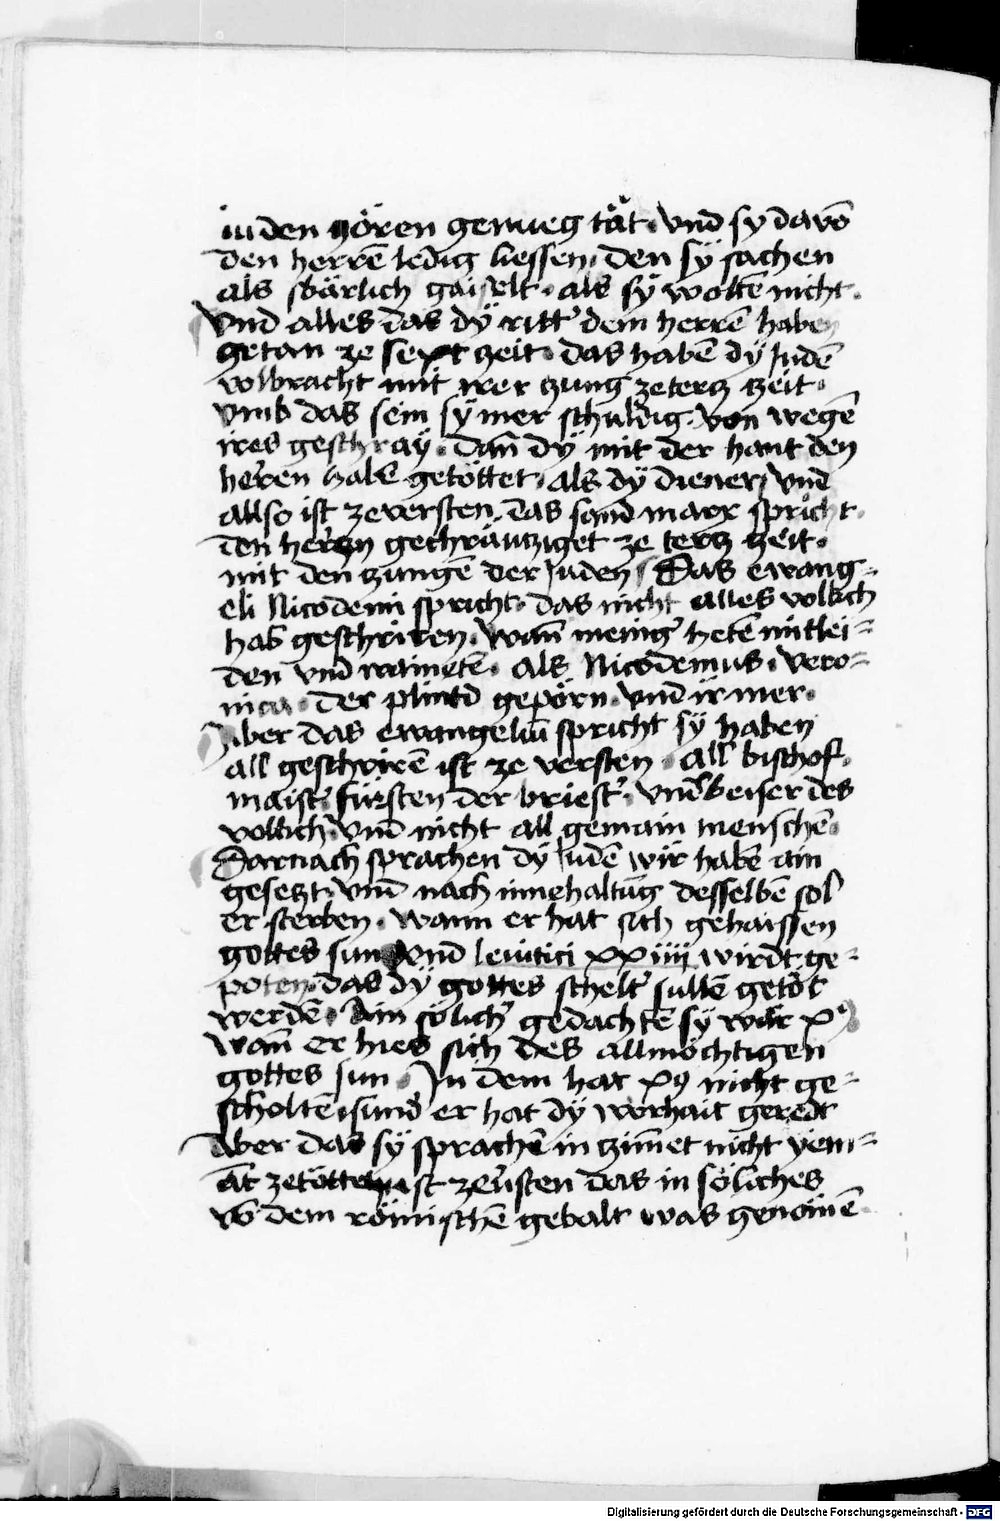 iuden zören genueg tät · vnd sy davō
den herrē ledig liessen · den sÿ sachen
als sbärlich gaiselt · als sÿ woltē nicht ·
Vnd alles das dÿ ritt' dem herrē haben
getan ze sext zeit · das habē dÿ Judē
volbracht mit irer zung ze tercz czeit ·
vmb das sein sÿ mer schuldig · von wegē
ires geschraÿ · dañ dÿ mit der hant den
herren habē getöttet · als dÿ diener / vnd
allso ist zeversten das sand marx spricht ·
den herren gechräucziget ze tercz zeit ·
mit den zungē der Juden / Das ewang=
eli Nicodemi spricht · das nicht alles volkch
hab geschriren · wañ menig' hetē mitlei=
den vnd wainetē · als Nicodemus · vero=
nica · der plintd gepörn · vnd ir mer ·
Aber das ewangeliū spricht sÿ haben
all geschrirē ist ze versten · all bischof ·
maist' fürsten der briest' · vnd beiser des
volkch · vnd nicht all gemain menschē ·
Darnach sprachen dÿ Judē wir habē ain
gesetzt · vnd nach innehaltūg desselbē sol
er sterben · wann er hat sich gehaissen
gottes sun Vnd levitici xxiiii wirdt ge=
poten · das dÿ gottes schelt' sullē getöt
werdē · Ain sölich' gedachtē sÿ wär x9
wañ er hies sich des allmöchtigen
gottes sun · In dem hat x9 nicht ge=
scholtē · sund' er hat dÿ worhait geredt
Aber das sÿ sprachē in zimet nicht yem=
āt zetötten ist zeu'sten das in söliches
vō dem römischē gebalt was genömē
Digitalisierung gefördert durch die Deutsche Forschungsgemeinschaft - DFG